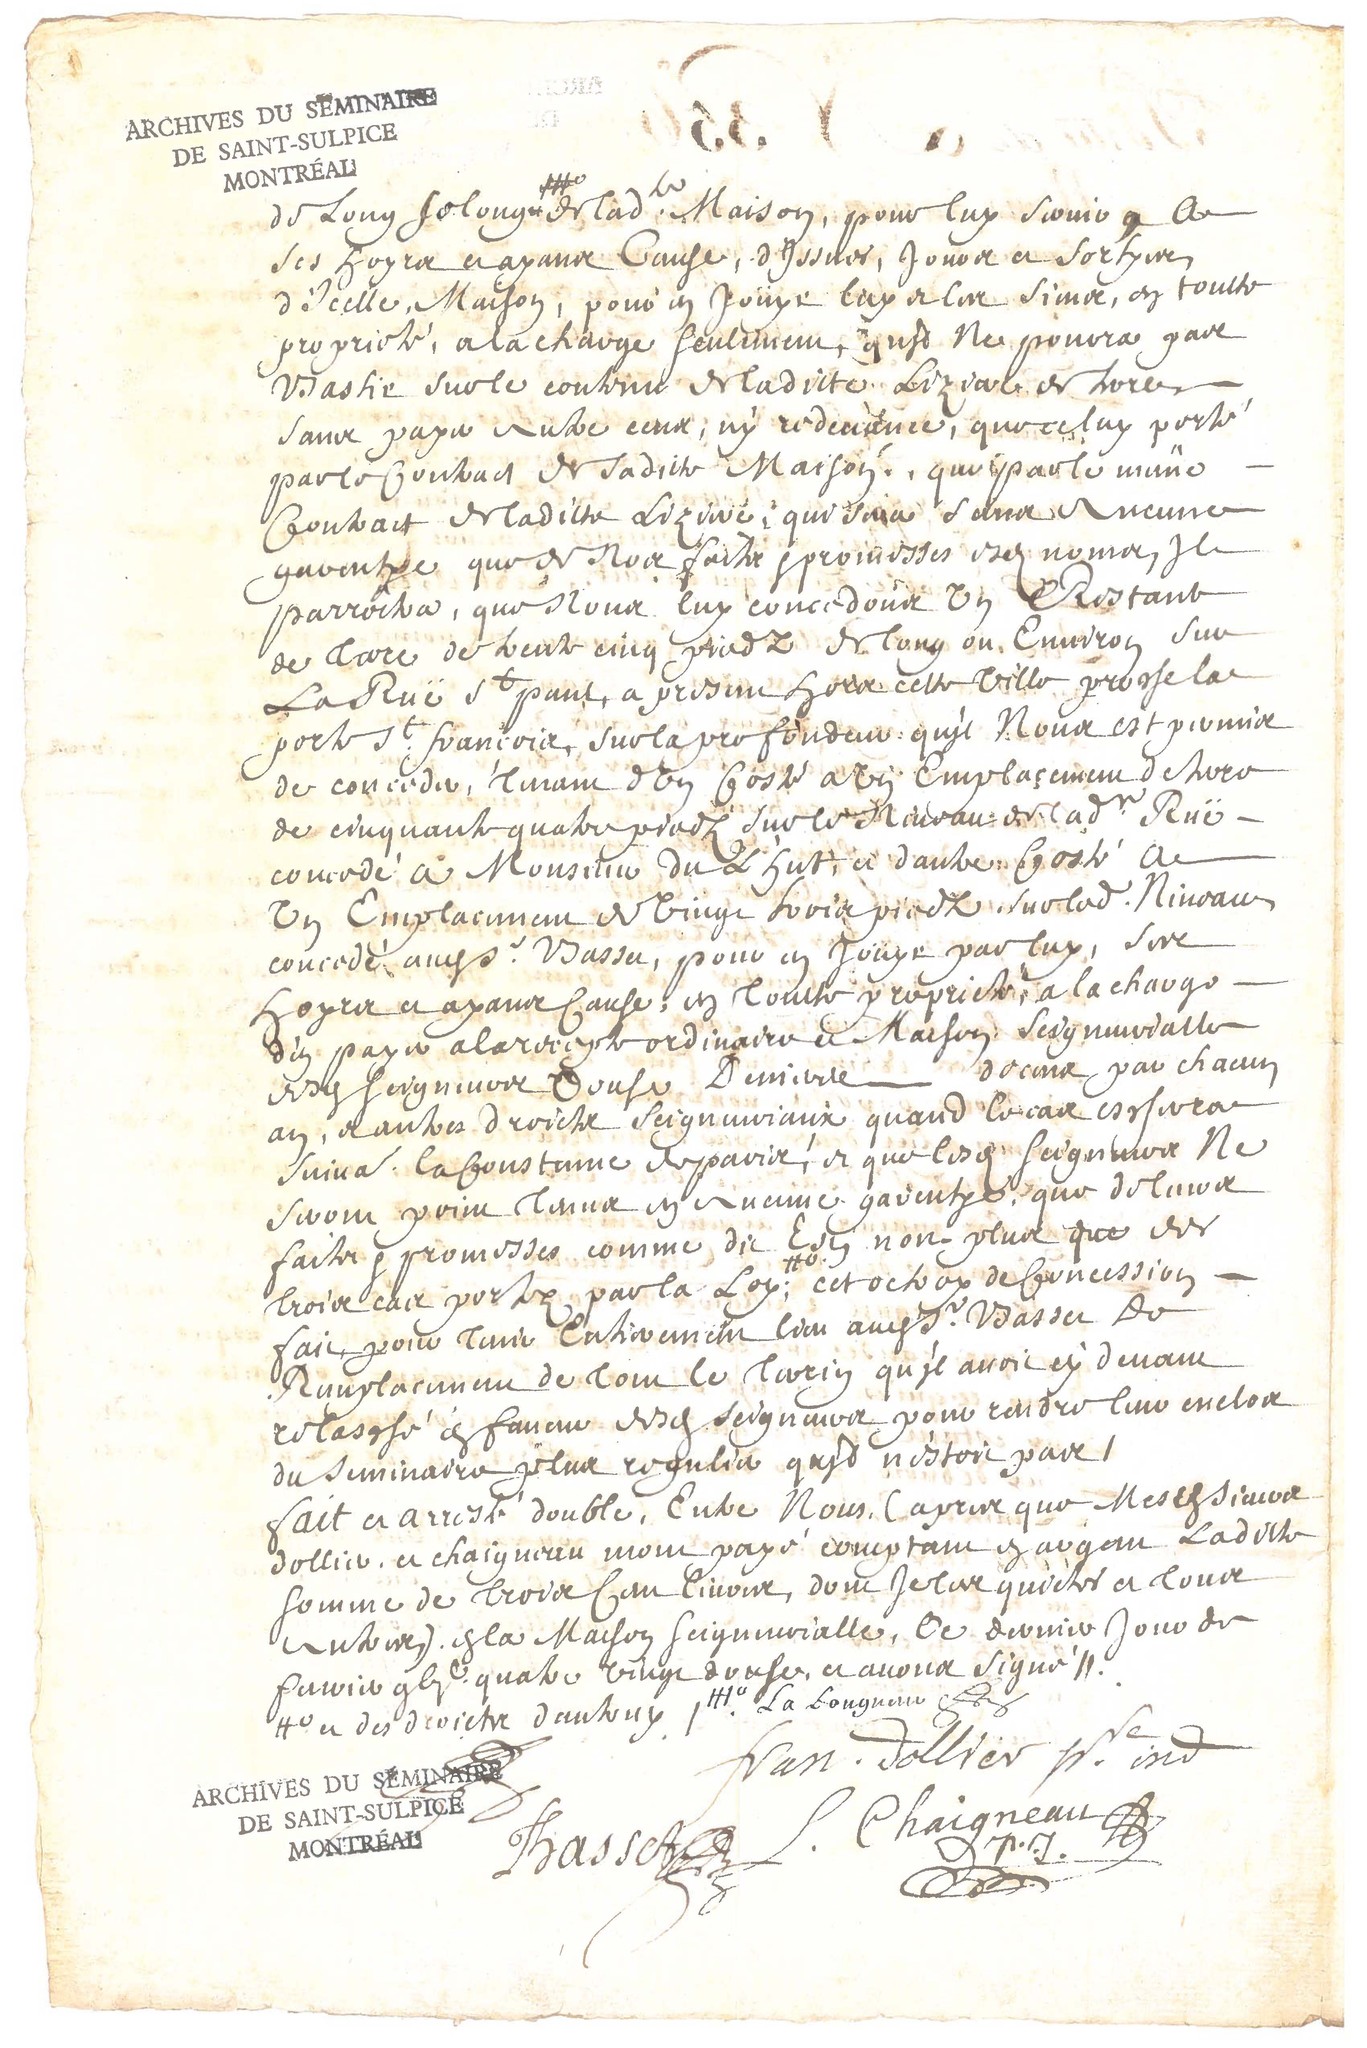 ARCHIVES DU SÉMINAIRE
DE SAINT-SULPICE
MONTRÉAL
de Long Le long ttto de lad.te Maison, pour luy servir, &
ses hoyrs et ayans Cause, d'Issues, Jours et sortyes
d'Icelle Maison, pour en Jouyr luy et les siens, en toutte
proprieté, a la charge seulement, qu'Il Ne pourra pas
Bastir sur le contenu de ladicte Liziere de terre
sans payer Autre cens, ny redevance, que celuy porté
par le Contract de sadicte Maison, que par le mesme
Contract de ladicte Liziere, qui sera sans Aucune
garentye que de Nos faits & promesses esd noms, Il
parroistra, que Nous luy concedons Un Restant
de terre de trente cinq piedz de long ou Environ sur
La Ruë St. paul, a present hors cette Ville proche la
porte St. françois, sur la profondeur qu'Il Nous est permis
de conceder, tenant d'Un Costé a Un Emplacement de terre
de cinquante quatre piedz sur le Niveau de lad. Ruë
concedé a Monsieur du L'hut, et d'autre Costé a
Un Emplacement de Vingt trois piedz sur led. Niveau
concedé aud Sr. Basset, pour en Jouyr par luy, ses
Hoyrs et ayans Cause, en toutte proprieté, a la charge
d'en payer a la recepte ordinaire et Maison seigneurialle
desd seigneurs Douse Deniers de cens par chacun
an, et autres droicts seigneuriaux quand le cas escherra
suivat. la Coustume de paris, et que lesd seigneurs Ne
seront point tenus en Aucune garentye, que de leurs
faits & promesses comme dit Est, non plus que des
trois cas portez par la Loy, tto. cet octroy de Concession
fait, pour tenir Entierement lieu aud Sr. Basset De
Remplacement de tout le terrin qu'Il avoit cy devant
relasché en faveur desd seigneurs pour rendre leur enclos
du seminaire plus regulier qu'Il n'estoit pas /
fait et arresté double, Entre Nous, (apres que Mesd sieurs
dollier et chaigneau m'ont payé comptant en argent Ladicte
somme de trois Cens livres, dont Je les quicte et tous
Autres) en la Maison seigneurialle, Ce dernier Jour de
fevrier gbjc. quatre vingt douse, et avons signé //.
tto et des droicts d'autruy / ttto. La Longueur
fran. Dollier ptre ind
Basset
L. Chaigneau
p.J.
ARCHIVES DU SÉMINAIRE
DE SAINT-SULPICE
MONTRÉAL